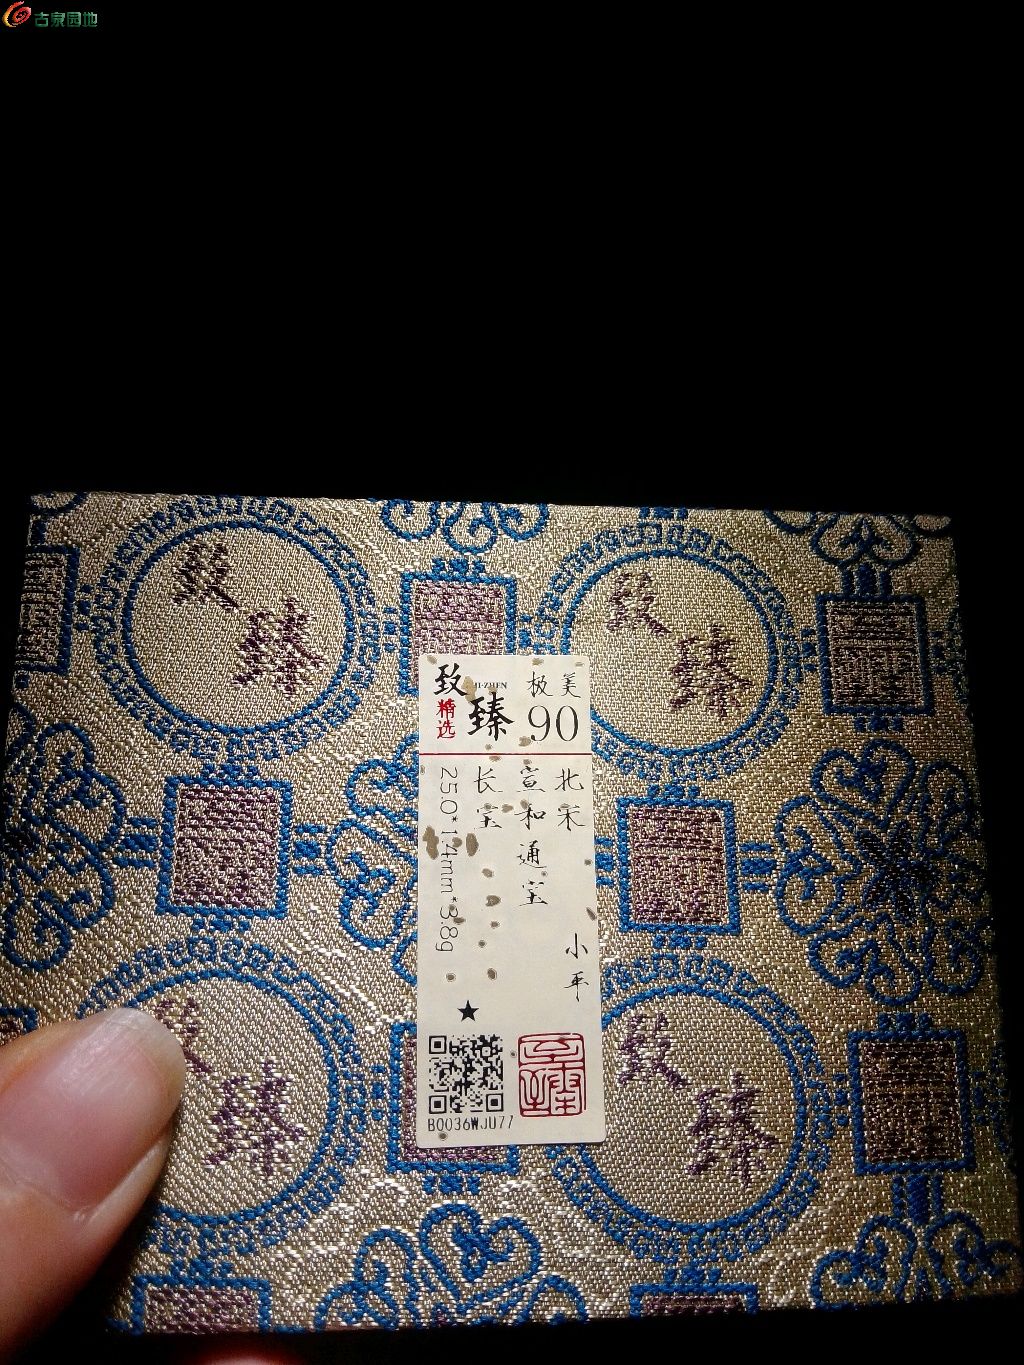 古泉园地
致臻
致臻
致 ZHI·ZHEN
臻
精选
极美
90
北宋
小平
宣和通宝
长宝
25.0*1.4mm*3.8g
★
B0036WJU77
致臻
致臻